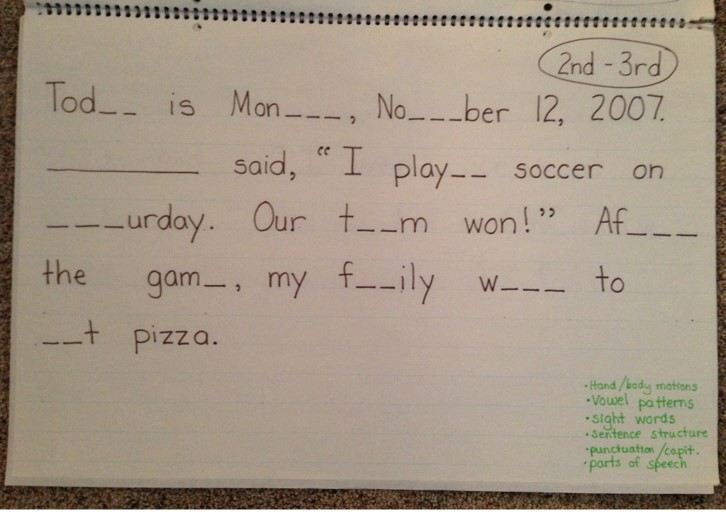 2nd - 3rd
Tod__ is Mon___, No___ber 12, 2007.
________ said, "I play__ soccer on
___urday. Our t__m won!" Af___
the gam_, my f__ily w___ to
__t pizza.
• Hand/body motions
• Vowel patterns
• sight words
• sentence structure
• punctuation/capit.
• parts of speech